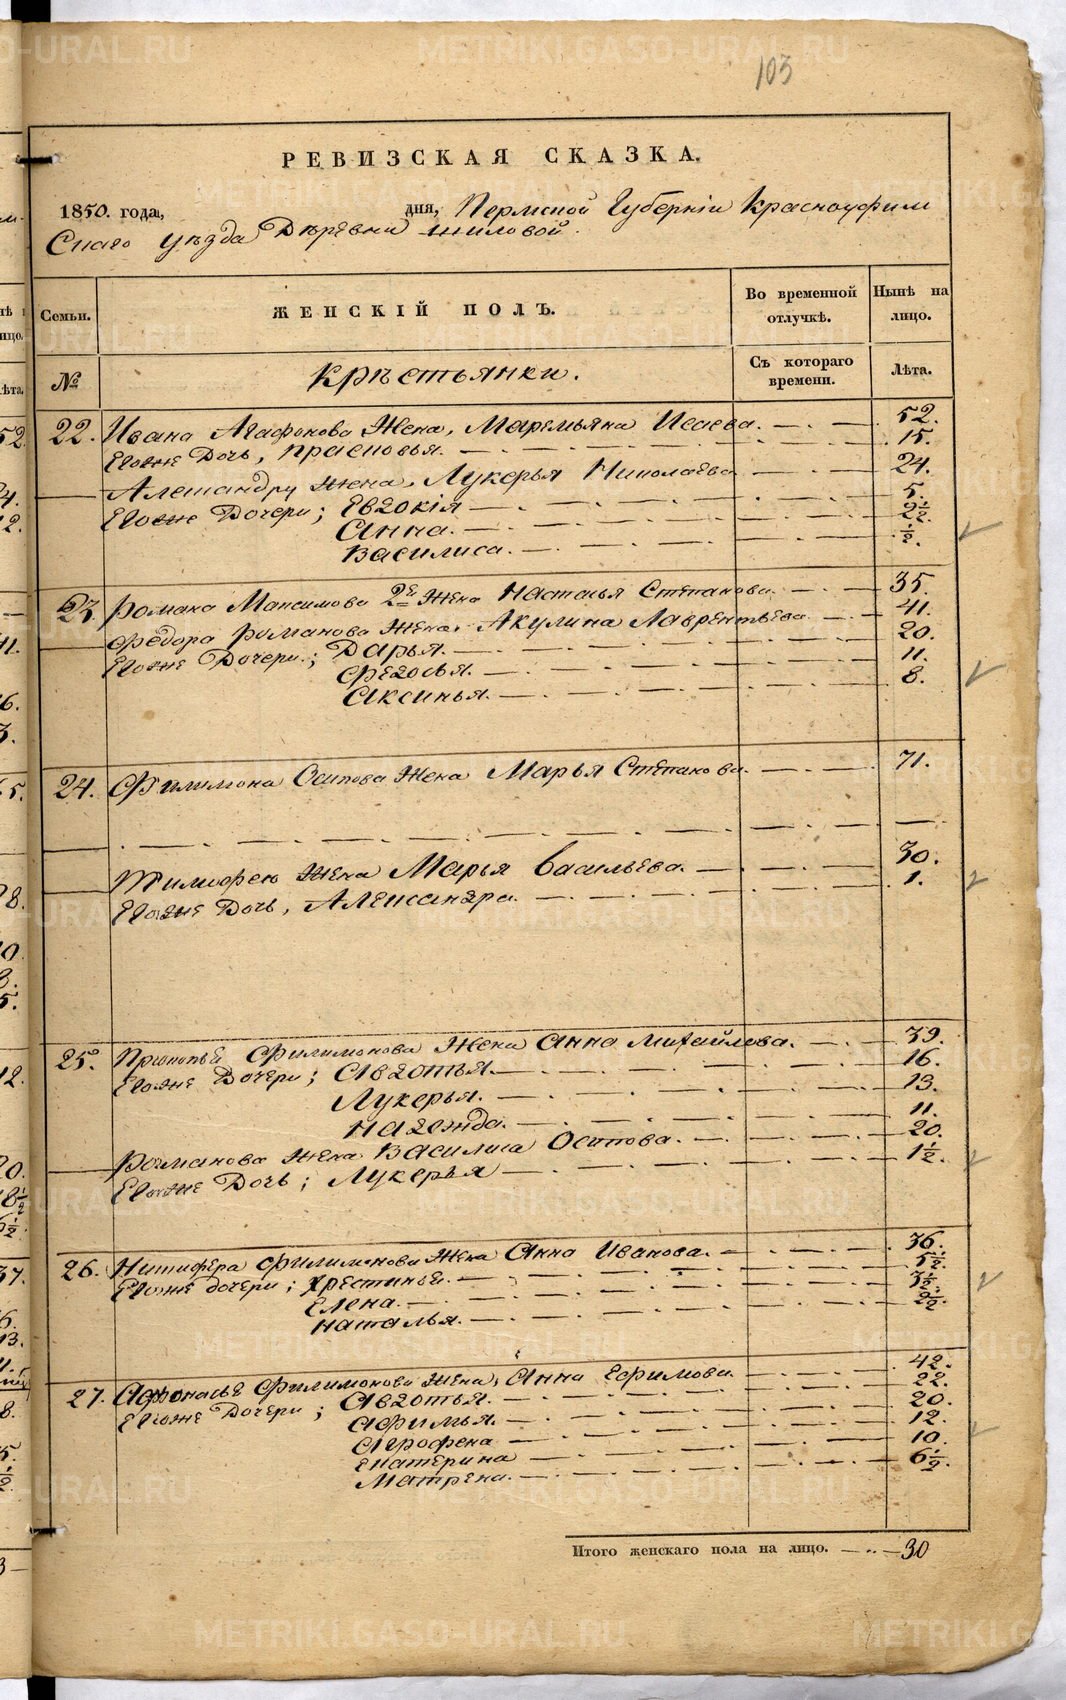 103
РЕВИЗСКАЯ СКАЗКА.
1850. года, дня, Пермской Губерніи Красноуфим
Скаго уѣзда Деревни Шиловой.
Семьи. ЖЕНСКІЙ ПОЛЪ. Во временной отлучкѣ. Нынѣ на лицо.
№ Крестьянки. Съ котораго времени. Лѣта.
22. Ивана Агафонова Жена, Маремьяна Исаева. 52.
Егоже Дочь, Прасковья. 15.
Александру жена, Лукерья Николаева 24.
Егоже Дочери; Евдокія 5.
Анна. 2 1/2.
Василиса. 1/2.
23. Романа Максимова 2я жена Настасья Степанова. 35.
Федора Романова жена, Акулина Лаврентьева 41.
Егоже Дочери; Дарья. 20.
Федосья. 11.
Аксинья. 8.
24. Филимона Осипова жена Марья Степанова. 71.
Тимофею жена Марья Васильева. 30.
Егоже Дочь, Александра. 1.
25. Прокопья Филимонова жена Анна Михайлова. 39.
Егоже Дочери; Авдотья. 16.
Лукерья. 13.
Надежда. 11.
Романова жена Василиса Осипова. 20.
Егоже Дочь; Лукерья 1 1/2.
26. Никифера Филимонова жена Анна Иванова. 36.
Егоже дочери; Хрестинья. 5 1/2.
Елена. 3 1/2.
Наталья. 2/2
27. Афонасья Филимонова жена, Анна Ефимова. 42.
Егоже Дочери; Авдотья. 22.
Афимья. 20.
Агрофена 12.
Екатерина 10.
Матрена. 6 1/2.
Итого женскаго пола на лицо. 30
METRIKI.GASO-URAL.RU